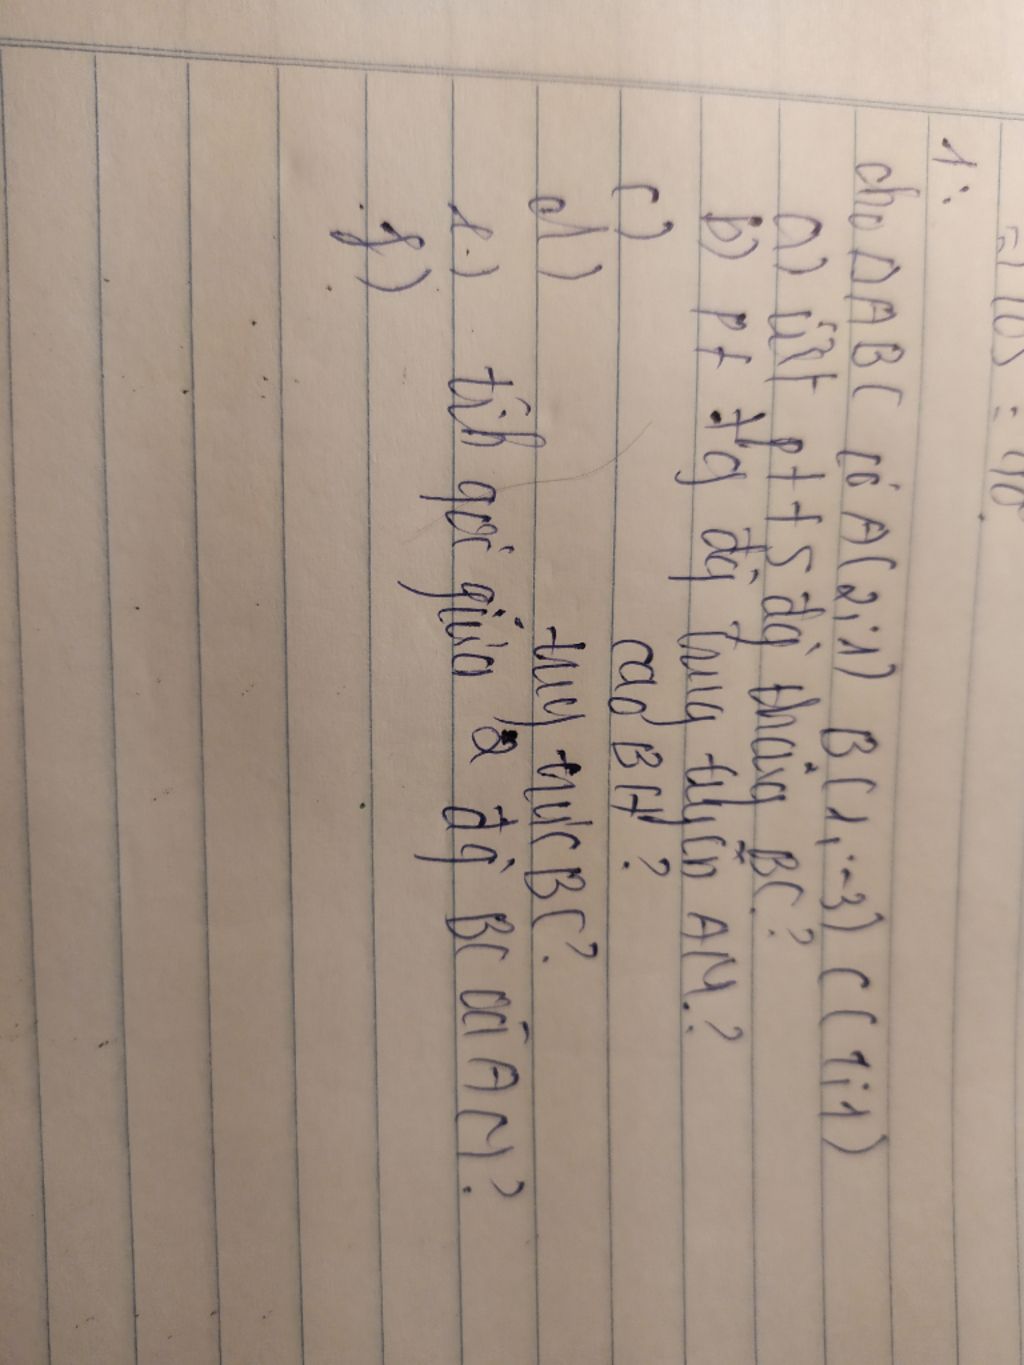 1:
cho ΔABC có A(2;1) B(1;-3) C(1;1)
a) viết ptts đg thẳng BC?
b) Pt tq đg trung tuyến AM?
c) cao BH?
d) trung trực BC?
e.) tính góc giữa 2 đg BC và AM?
f)